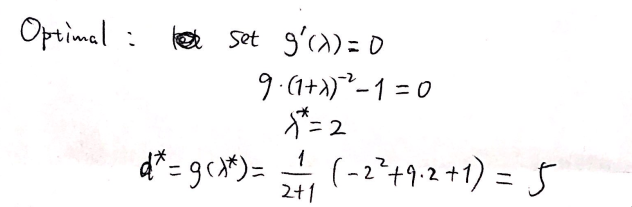 Optimal : set g'(λ) = 0
9·(1+λ)⁻² − 1 = 0
λ* = 2
d* = g(λ*) = 1/(2+1) (−2² + 9·2 + 1) = 5